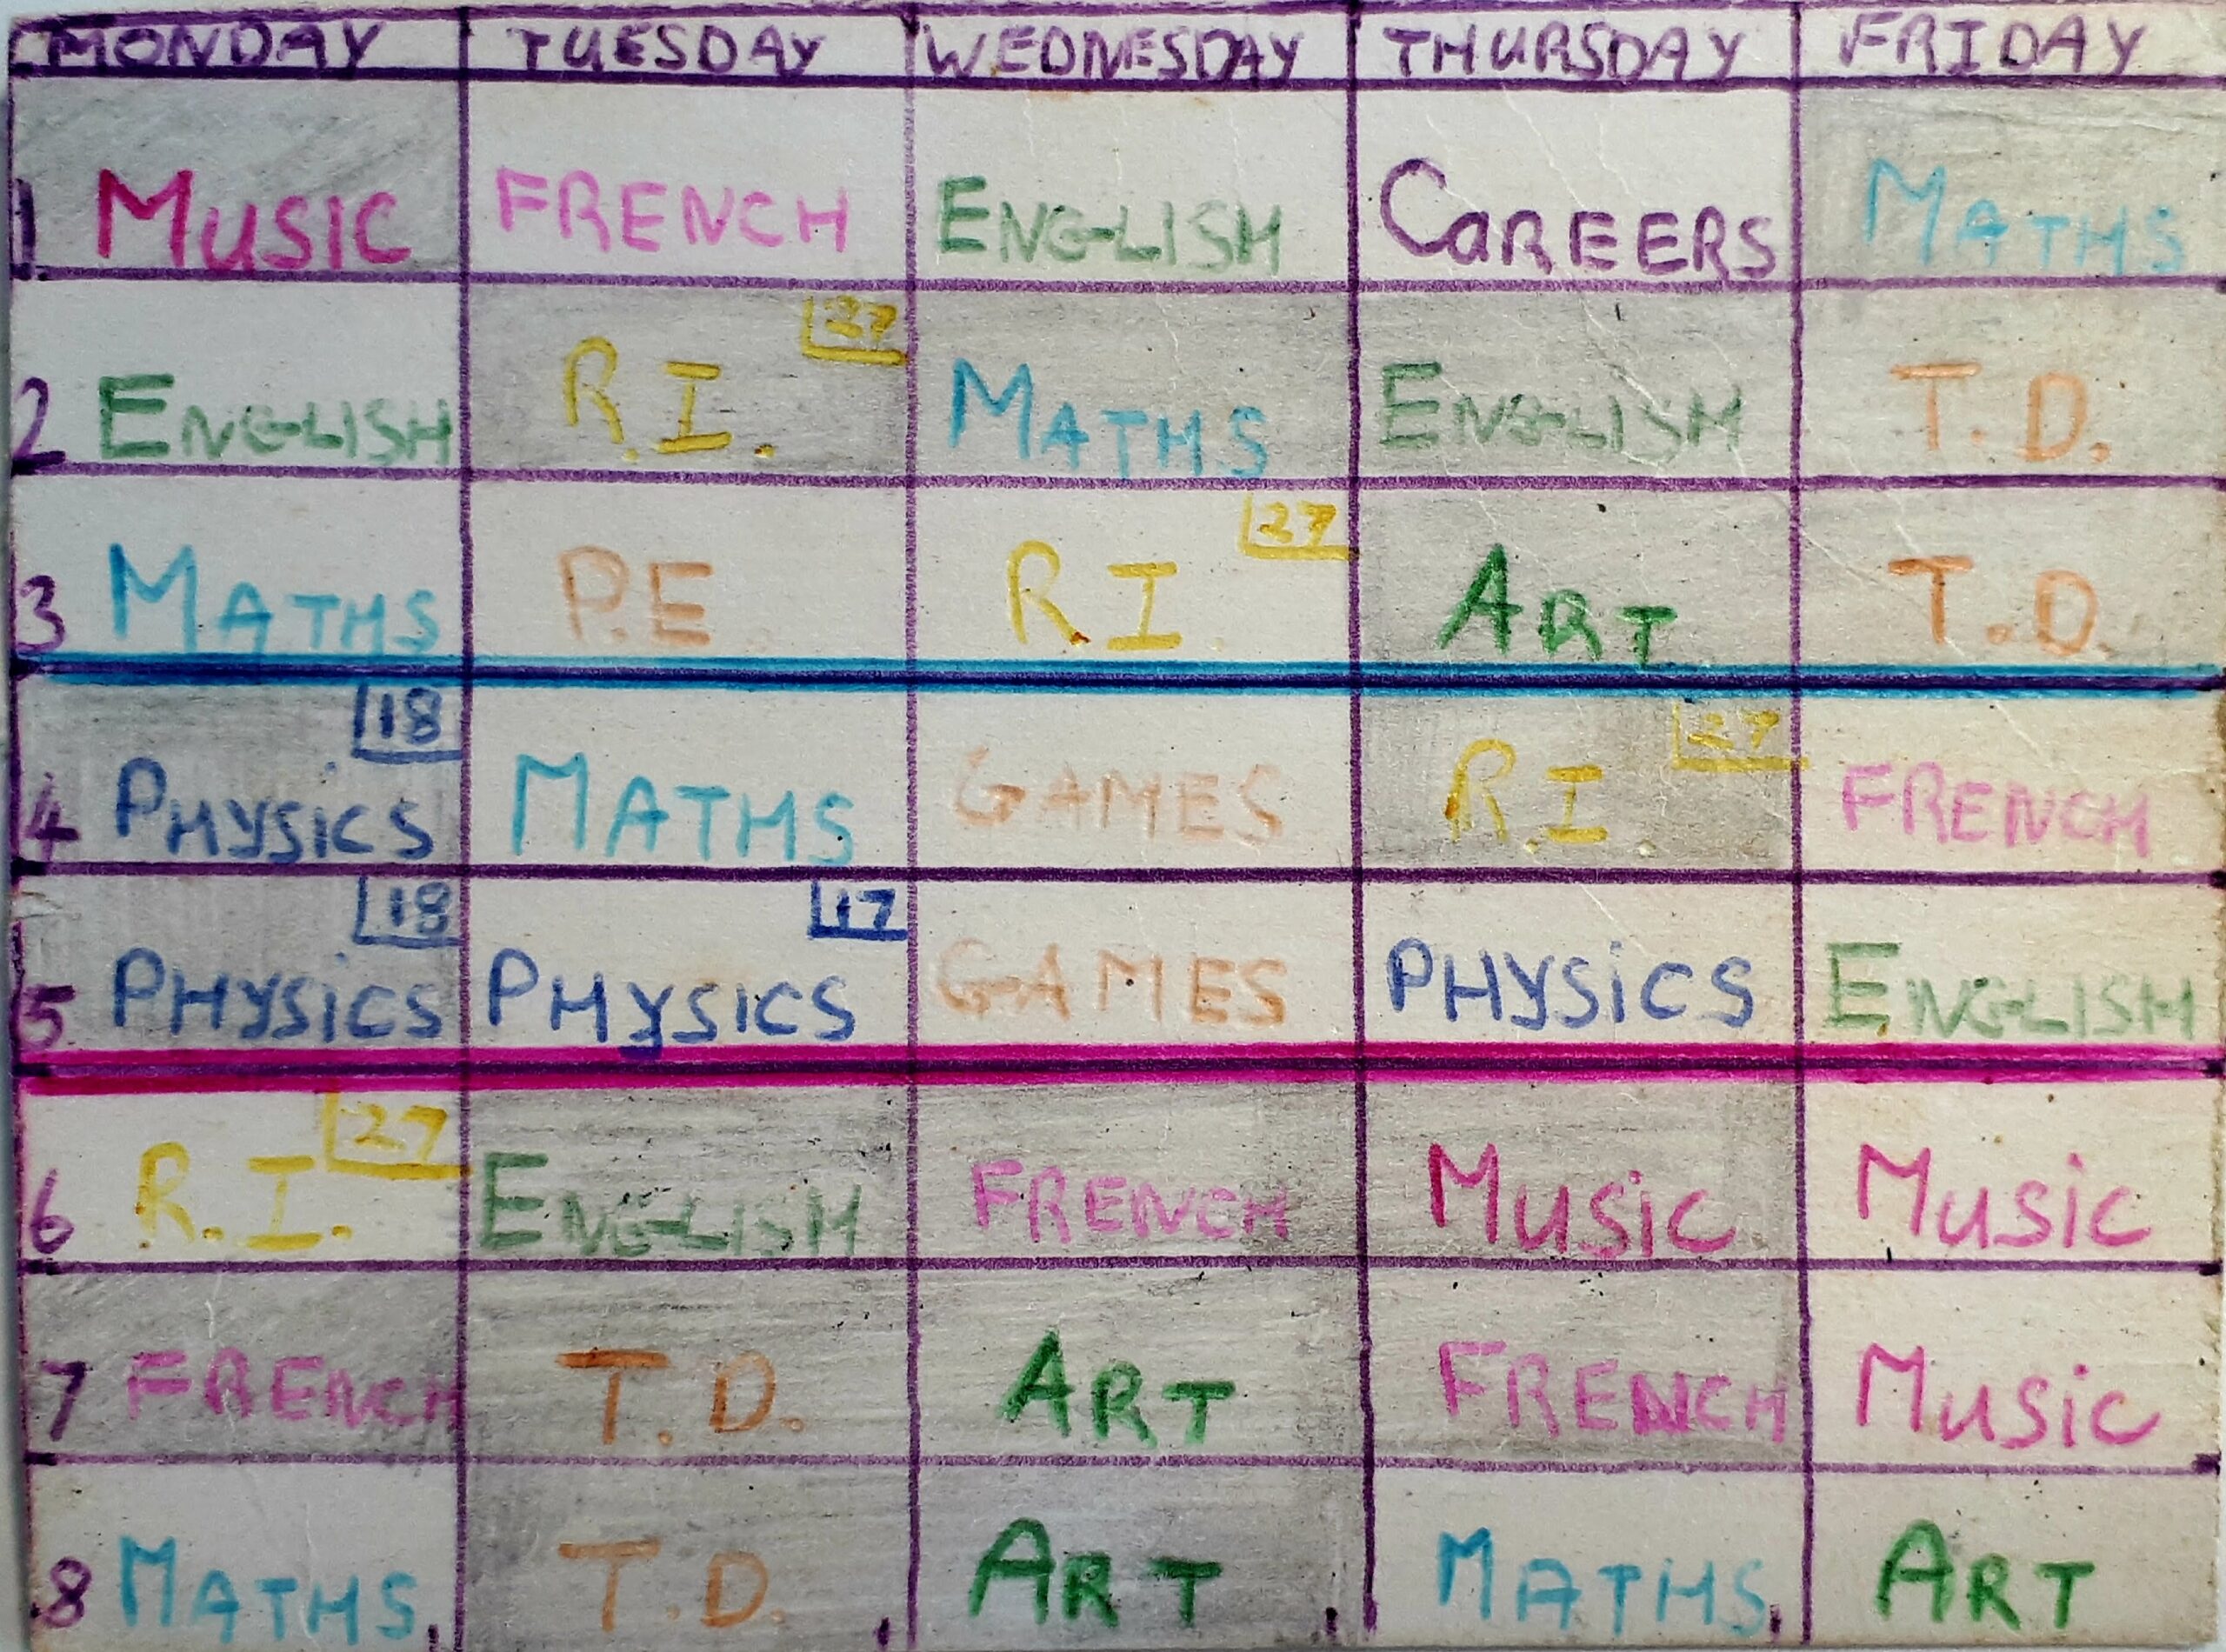 MONDAY TUESDAY WEDNESDAY THURSDAY FRIDAY
1 MUSIC FRENCH ENGLISH CAREERS MATHS
27
2 ENGLISH R.I. MATHS ENGLISH T.D.
27
3 MATHS P.E R.I. ART T.D.
18 27
4 PHYSICS MATHS GAMES R.I. FRENCH
18 17
5 PHYSICS PHYSICS GAMES PHYSICS ENGLISH
27
6 R.I. ENGLISH FRENCH MUSIC MUSIC
7 FRENCH T.D. ART FRENCH MUSIC
8 MATHS T.D. ART MATHS ART